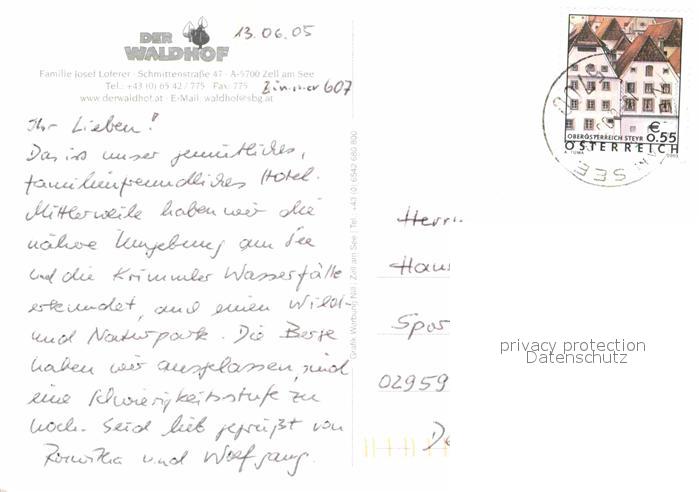 DER WALDHOF
13.06.05
Familie Josef Loferer · Schmittenstraße 47 · A-5700 Zell am See
Tel.: +43 (0) 65 42 / 775 · Fax: 775
Zimmer 607
www.derwaldhof.at · E-Mail: waldhof@sbg.at
Ihr Lieben!
Das ist unser gemütliches,
familienfreundliches Hotel.
Mittlerweile haben wir die
nähere Umgebung am See
und die Krimmler Wasserfälle
erkundet, und einen Wild-
und Naturpark. Die Berge
haben wir ausgelassen, sind
eine Schwierigkeitsstufe zu
hoch. Seid lieb gegrüßt von
und Wolfgang.
Grafik Werbung Nill · Zell am See | Tel. +43 (0) 6542 680 800
€ 0.55
OBERÖSTERREICH STEYR
ÖSTERREICH
A. TUMA
2003
SEE
Herrn
Hans
Spor
02959
privacy protection
Datenschutz